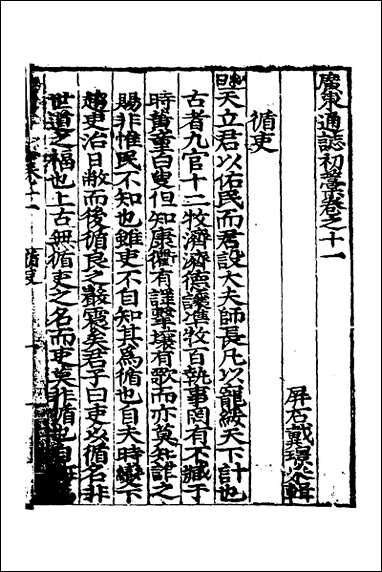 廣東通誌初藳卷之十一
屏石戴璟采輯
循吏
天立君以佑民而君設大夫師長凡以寵綏天下計也
古者九官十二牧濟濟德讓準牧百執事罔有不臧于
時黃童白叟但知康衢有謠擊壤有歌而亦莫知誰之
賜非惟民不知也雖吏不自知其為循也自夫時變下
趨吏治日敝而後循良之嚴震矣君子曰吏以循名非
世道之福也上古無循吏之名而吏莫非循也自
卷十一 循吏